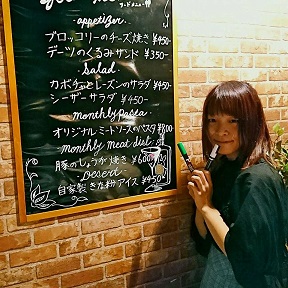 フードメニュー
appetizer
ブロッコリーのチーズ焼き ¥450-
デーツのくるみサンド ¥350-
Salad
カボチャとレーズンのサラダ ¥450-
シーザーサラダ ¥450-
monthly Pasta
オリジナルミートソースのパスタ ¥800-
Monthly meat dish
豚のしょうが焼き ¥600
Desert
自家製きな粉アイス ¥450-